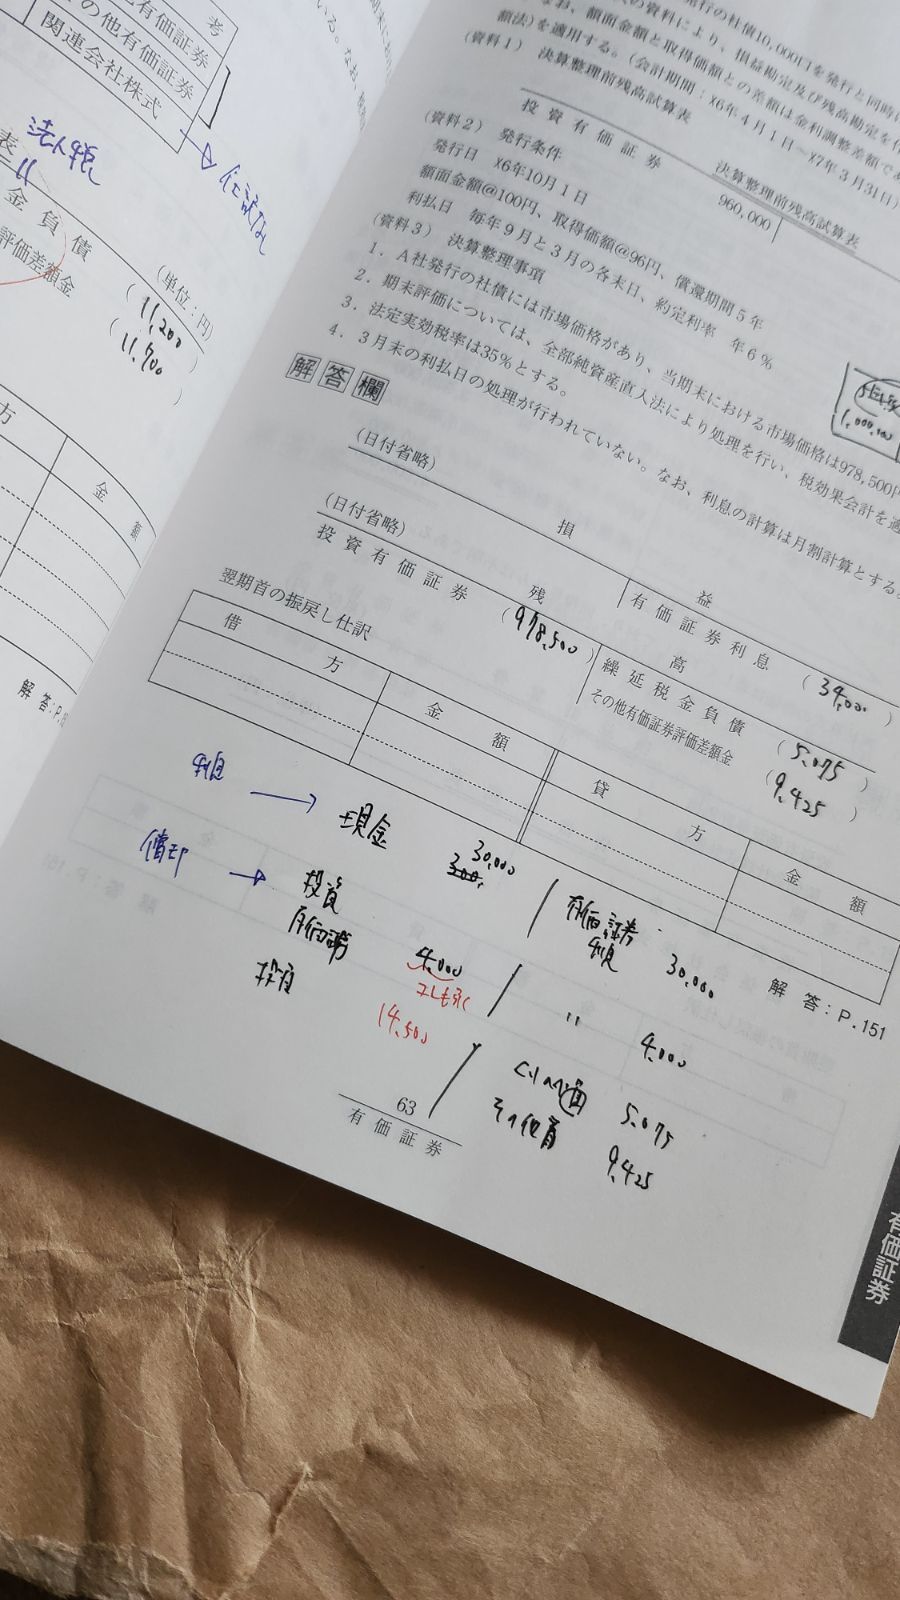 考
有価証券
の他有価証券
関連会社株式
仕訳なし
法人税
金負債
評価差額金
(単位：円)
(11,200)
(11,700)
方
金額
発行の社債10,000口を発行と同時に
の資料により、損益勘定及び残高勘定を
なお、額面金額と取得価額との差額は金利調整差額で
額法)を適用する。(会計期間：X6年4月1日～X7年3月31日)
(資料1) 決算整理前残高試算表
決算整理前残高試算表
投資有価証券 960,000
(資料2) 発行条件
発行日 X6年10月1日
額面金額@100円、取得価額@96円、償還期間5年
利払日 毎年9月と3月の各末日、約定利率 年6%
(資料3) 決算整理事項
1．A社発行の社債には市場価格があり、当期末における市場価格は978,500円
2．期末評価については、全部純資産直入法により処理を行い、税効果会計を適
3．法定実効税率は35%とする。
4．3月末の利払日の処理が行われていない。なお、利息の計算は月割計算とする。
1,000,000
解答欄
損益
(日付省略) 有価証券利息 (34,000)
残高
(日付省略) 繰延税金負債 (5,075)
投資有価証券 (978,500) その他有価証券評価差額金 (9,425)
翌期首の振戻し仕訳
借方 金額 貸方 金額
解答：P.151
利息 → 現金 30,000 有価証券利息 30,000
償却 → 投資有価証券 4,000 〃 4,000
投資 14,500 5,075
9,425
63
有価証券
有価証券